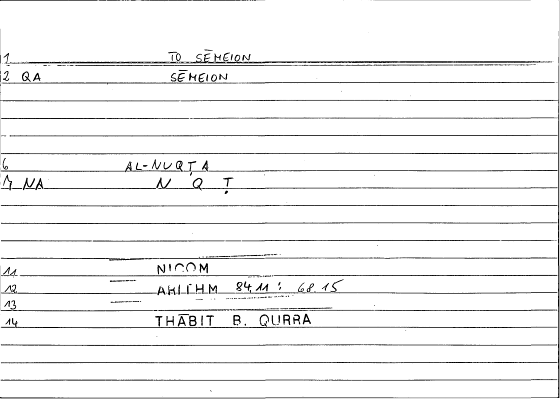 1 TO SĒMEION
2 QA SĒMEION
6 AL-NUQṬA
7 NA N Q Ṭ
11 NICOM
12 ARITHM 84.11 : 68.15
13
14 THĀBIT B. QURRA